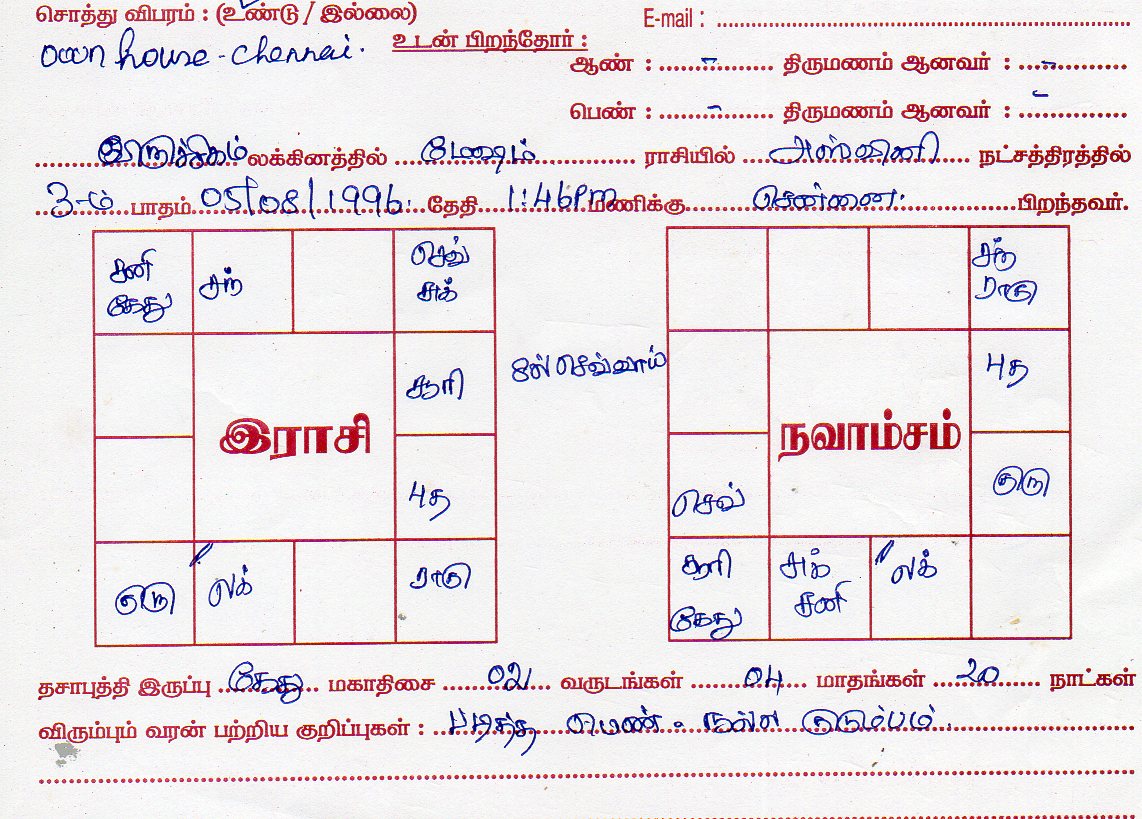 சொத்து விபரம் : (உண்டு / இல்லை)
E-mail : ....................
own house - chennai.
உடன் பிறந்தோர் :
ஆண் : ....-.... திருமணம் ஆனவர் : ....-....
பெண் : ....-.... திருமணம் ஆனவர் : ....-....
விருச்சிகம் லக்கினத்தில் மேஷம் ராசியில் அஸ்வினி நட்சத்திரத்தில்
3-ம் பாதம் 05/08/1996. தேதி 1:46PM மணிக்கு சென்னை. பிறந்தவர்.
சனி கேது
சந்
செவ் சுக்
சூரி
இராசி
புத
குரு
லக்
ராகு
8ல் செவ்வாய்
சந் ராகு
புத
நவாம்சம்
செவ்
குரு
சூரி கேது
சுக் சனி
லக்
தசாபுத்தி இருப்பு கேது மகாதிசை 02 வருடங்கள் 04 மாதங்கள் 20 நாட்கள்
விரும்பும் வரன் பற்றிய குறிப்புகள் : படித்த பெண் - நல்ல குடும்பம்.